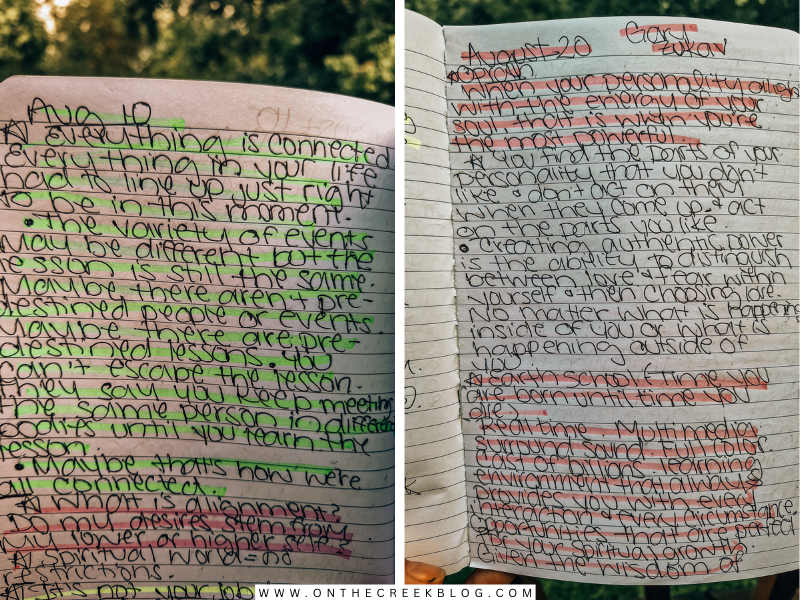 Aug 10
☆ Everything is connected
Everything in your life
had to line up just right
to be in this moment.
• the variety of events
may be different but the
lesson is still the same.
Maybe there aren't pre-
destined people or events.
Maybe these are pre-
destined lessons. You
can't escape the lesson.
They say you keep meeting
the same person in different
bodies until you learn the
lesson.
• Maybe that's how we're
all connected.
☆ What is alignment?
Do my desires stem from
my lower or higher self?
☆ Spiritual world = no
restrictions.
☆ It's not your job
August 20 Gary
Zukav
☆ Oprah
When your personality aligns
with the energy of your
soul that is when you're
the most powerful.
☆ You find the parts of your
personality that you don't
like & don't act on them
when they come up & act
on the parts you like
• creating authentic power
is the ability to distinguish
between love & fear within
yourself & then choosing love.
No matter what is happening
inside of you or what is
happening outside of
you.
☆ Earth school (Time you
are born until time you
die)
- Real time. Multimedia
surround sound. Full color.
cast of billions learning
environment that always
provides you with every
interaction & every circumstance
opportunities that are perfect
for your spiritual growth
Given the wisdom of
WWW.ONTHECREEKBLOG.COM